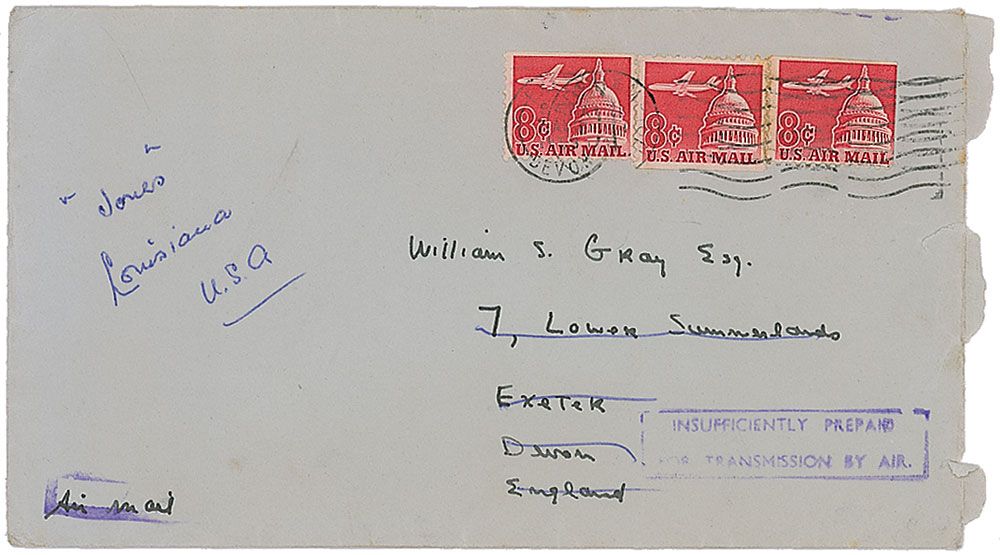 8¢
U.S. AIR MAIL
8¢
U.S. AIR MAIL
8¢
U.S. AIR MAIL
DEVON
" Jones "
Louisiana
U.S.A
William S. Gray Esq.
7, Lower Summerlands
Exeter
Devon
England
INSUFFICIENTLY PREPAID
FOR TRANSMISSION BY AIR.
Air mail